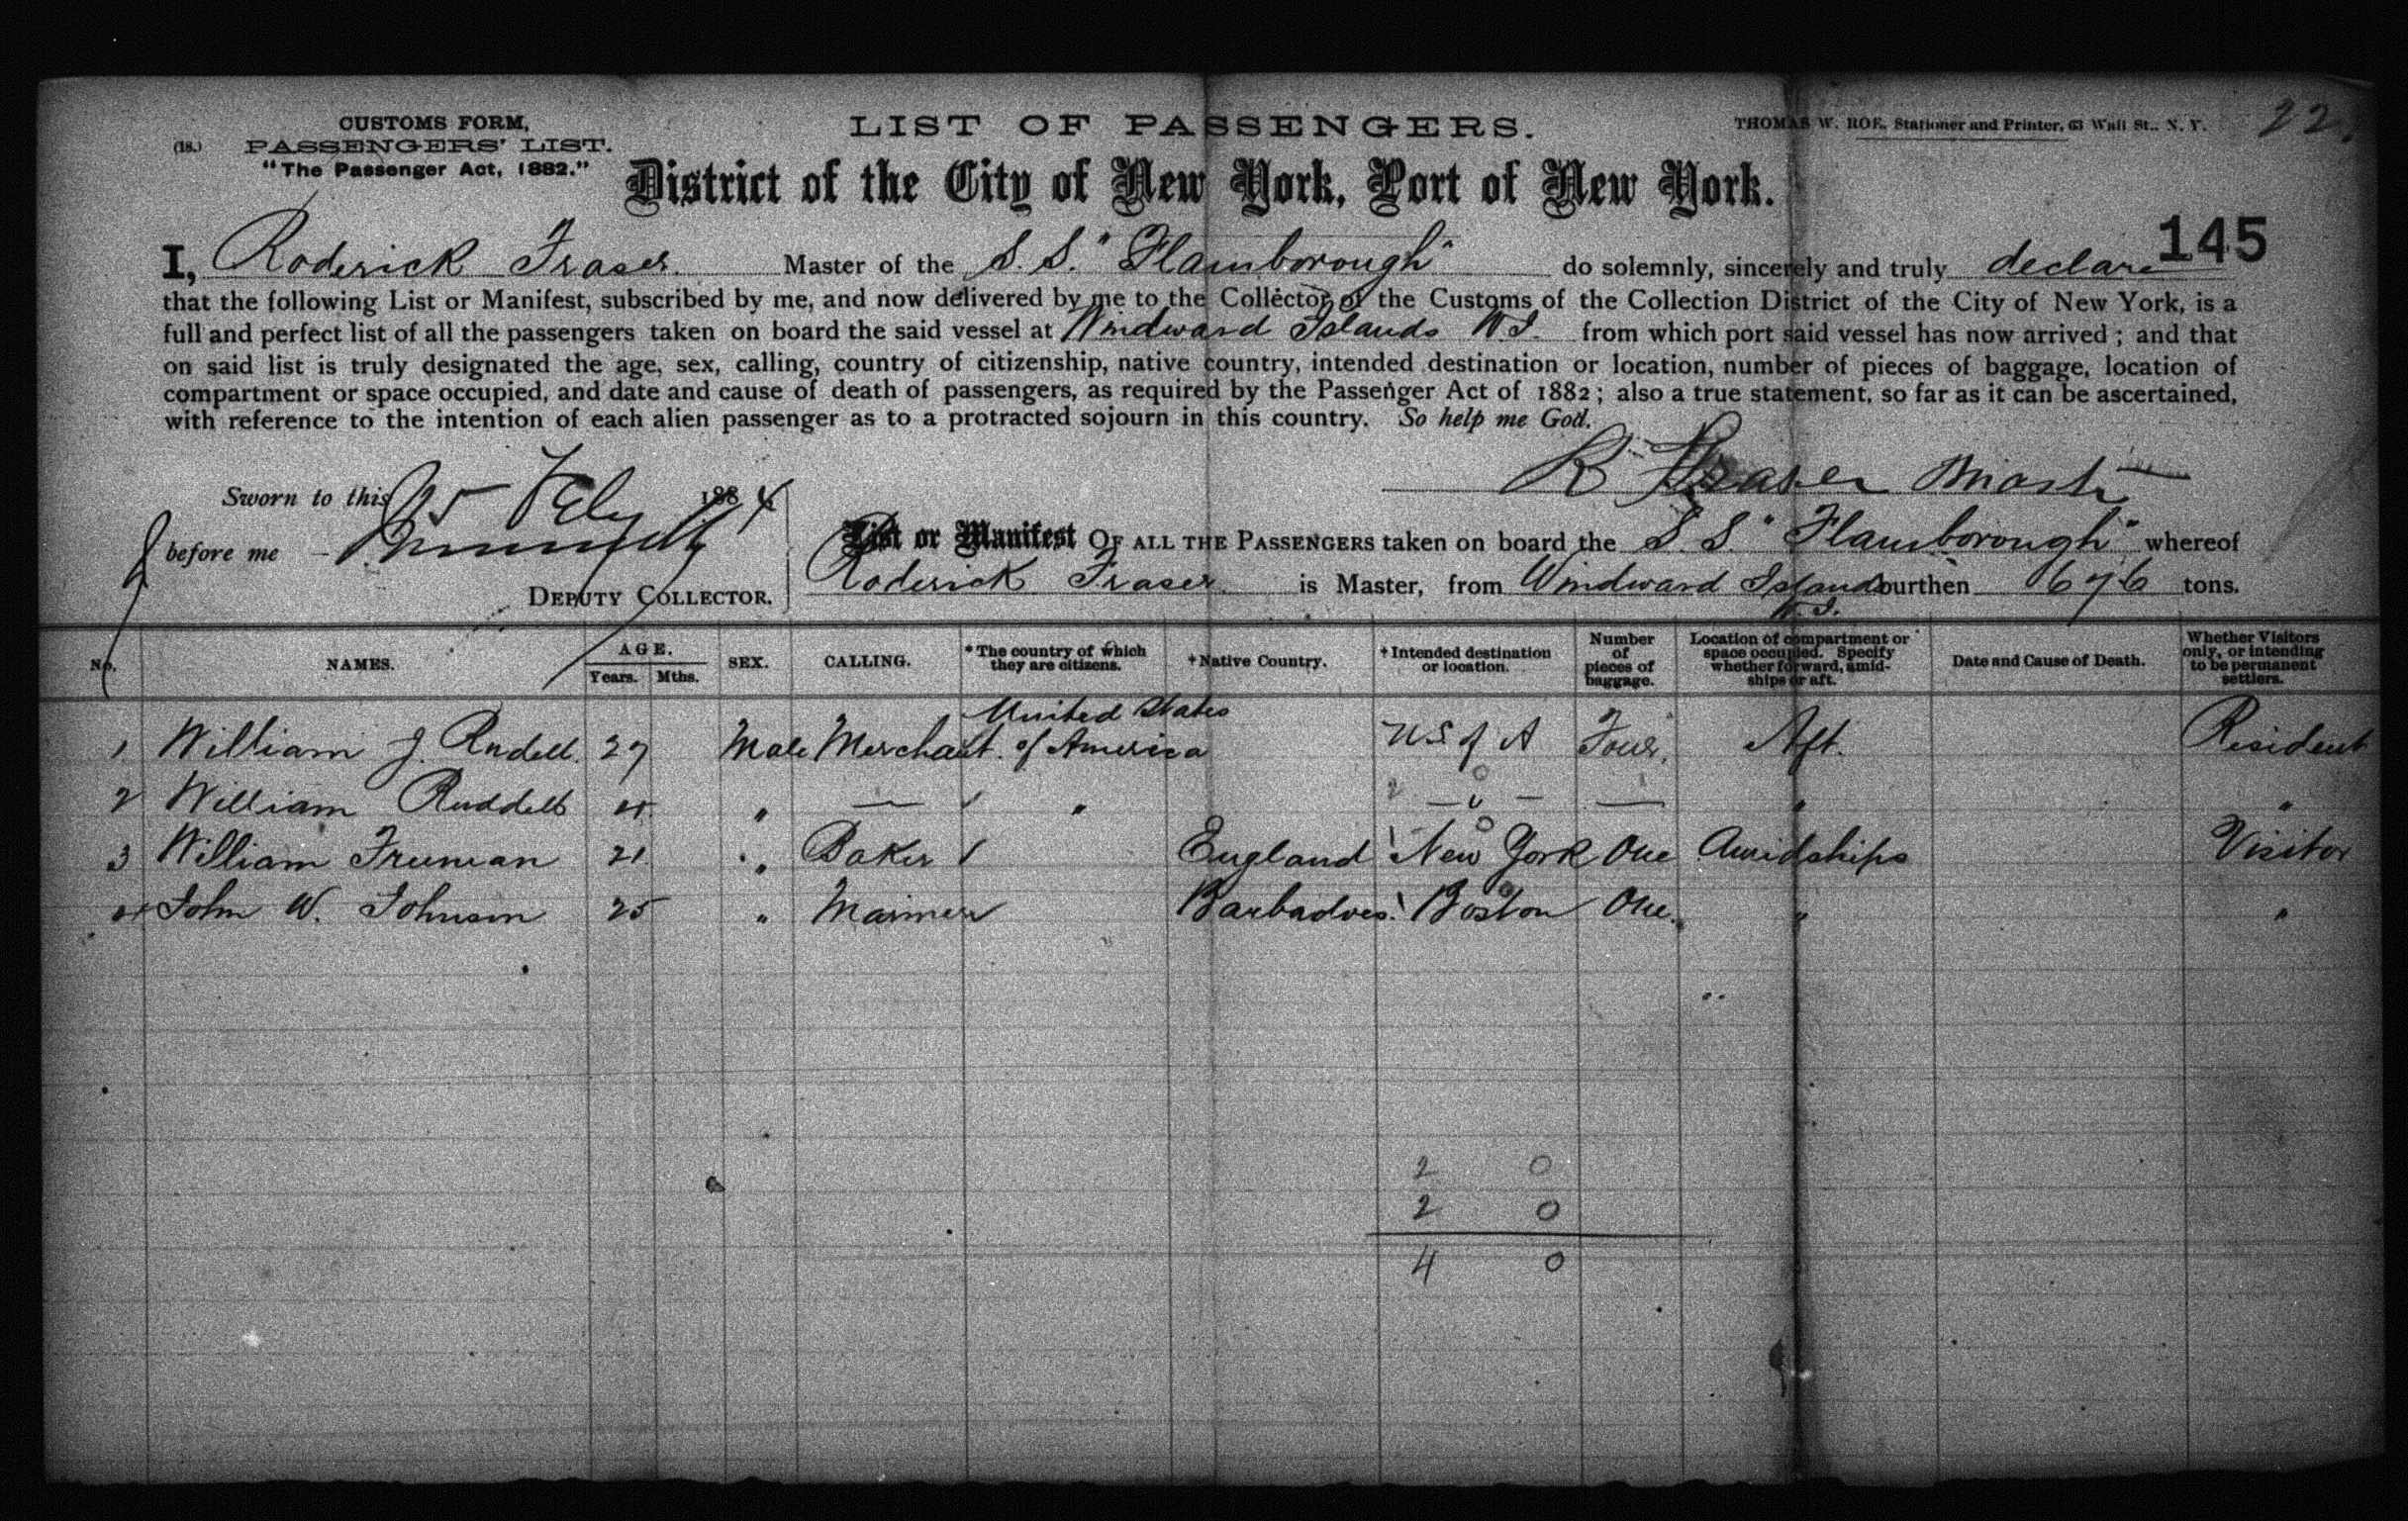 CUSTOMS FORM,
(18.) PASSENGERS' LIST.
"The Passenger Act, 1882."
LIST OF PASSENGERS.
THOMAS W. ROE, Stationer and Printer, 63 Wall St., N. Y.
22.
District of the City of New York, Port of New York.
145
I, Roderick Fraser Master of the S. S. "Flamborough" do solemnly, sincerely and truly declare
that the following List or Manifest, subscribed by me, and now delivered by me to the Collector of the Customs of the Collection District of the City of New York, is a
full and perfect list of all the passengers taken on board the said vessel at Windward Islands W.I. from which port said vessel has now arrived; and that
on said list is truly designated the age, sex, calling, country of citizenship, native country, intended destination or location, number of pieces of baggage, location of
compartment or space occupied, and date and cause of death of passengers, as required by the Passenger Act of 1882; also a true statement, so far as it can be ascertained,
with reference to the intention of each alien passenger as to a protracted sojourn in this country. So help me God.
R Fraser Master
Sworn to this 25 Feby 1884
before me
DEPUTY COLLECTOR.
List or Manifest OF ALL THE PASSENGERS taken on board the S. S. "Flamborough" whereof
Roderick Fraser is Master, from Windward Islands burthen 676 tons.
W. I.
No. NAMES. AGE. Years. Mths. SEX. CALLING. *The country of which they are citizens. †Native Country. †Intended destination or location. Number of pieces of baggage. Location of compartment or space occupied. Specify whether forward, amidships or aft. Date and Cause of Death. Whether Visitors only, or intending to be permanent settlers.
1 William J. Rudell. 27 Male Merchant. United States of America U S of A Four. Aft. Resident
2 William Ruddell " — " — " — — " "
3 William Freeman 21 " Baker England New York One Amidships Visitor
4 John W. Johnson 25 " Mariner Barbadoes. Boston One. " "
2 0
2 0
4 0